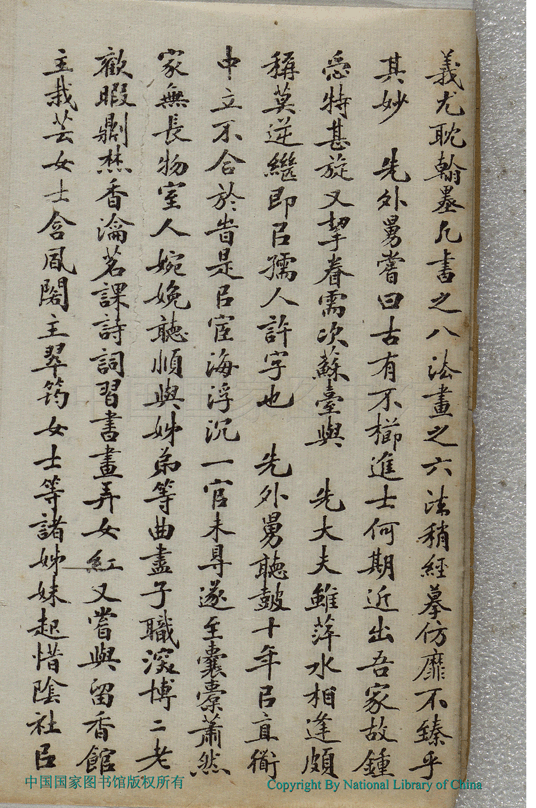 義尤耽翰墨凡書之八法畫之六法稍經摹仿靡不臻乎
其妙　先外舅嘗曰古有不櫛進士何期近出吾家故鍾
愛特甚旋又挈眷需次蘇臺與　先大夫雖萍水相逢頗
稱莫逆繼即㠯孺人許字也　先外舅聽鼓十年㠯直衜
中立不合於時是㠯宦海浮沉一官未㝵遂至囊橐蕭然
家無長物室人婉娩聽順與姊弟等曲盡子職深博二老
歡暇劘焚香瀹茗課詩詞習書畫弄女紅又嘗與留香館
主栽芸女士含鳳閣主翠筠女士等諸姊妹起惜陰社㠯
中国国家图书馆版权所有
Copyright By National Library of China